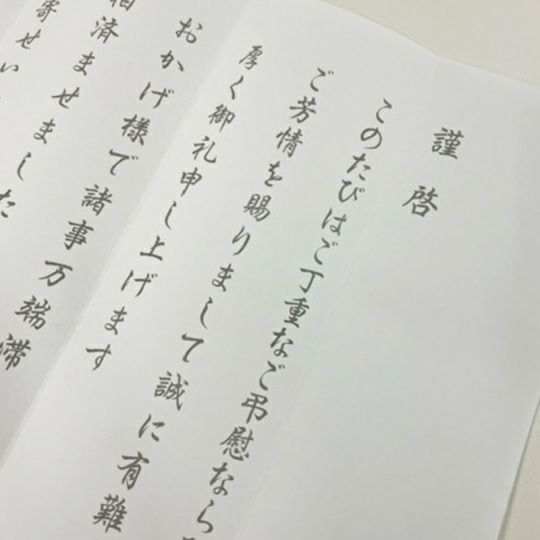 謹啓
このたびはご丁重なご弔慰なら
ご芳情を賜りまして誠に有難
厚く御礼申し上げます
おかげ様で諸事万端滞
済ませました
寄せい